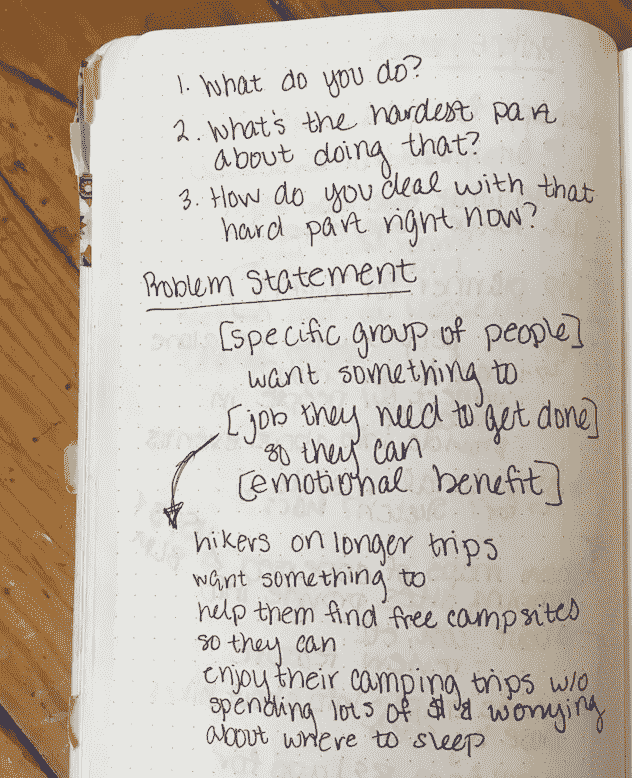 1. What do you do?
2. What's the hardest part
about doing that?
3. How do you deal with that
hard part right now?
Problem Statement
[specific group of people]
want something to
[job they need to get done]
so they can
[emotional benefit]
hikers on longer trips
want something to
help them find free campsites
so they can
enjoy their camping trips w/o
spending lots of $ & worrying
about where to sleep